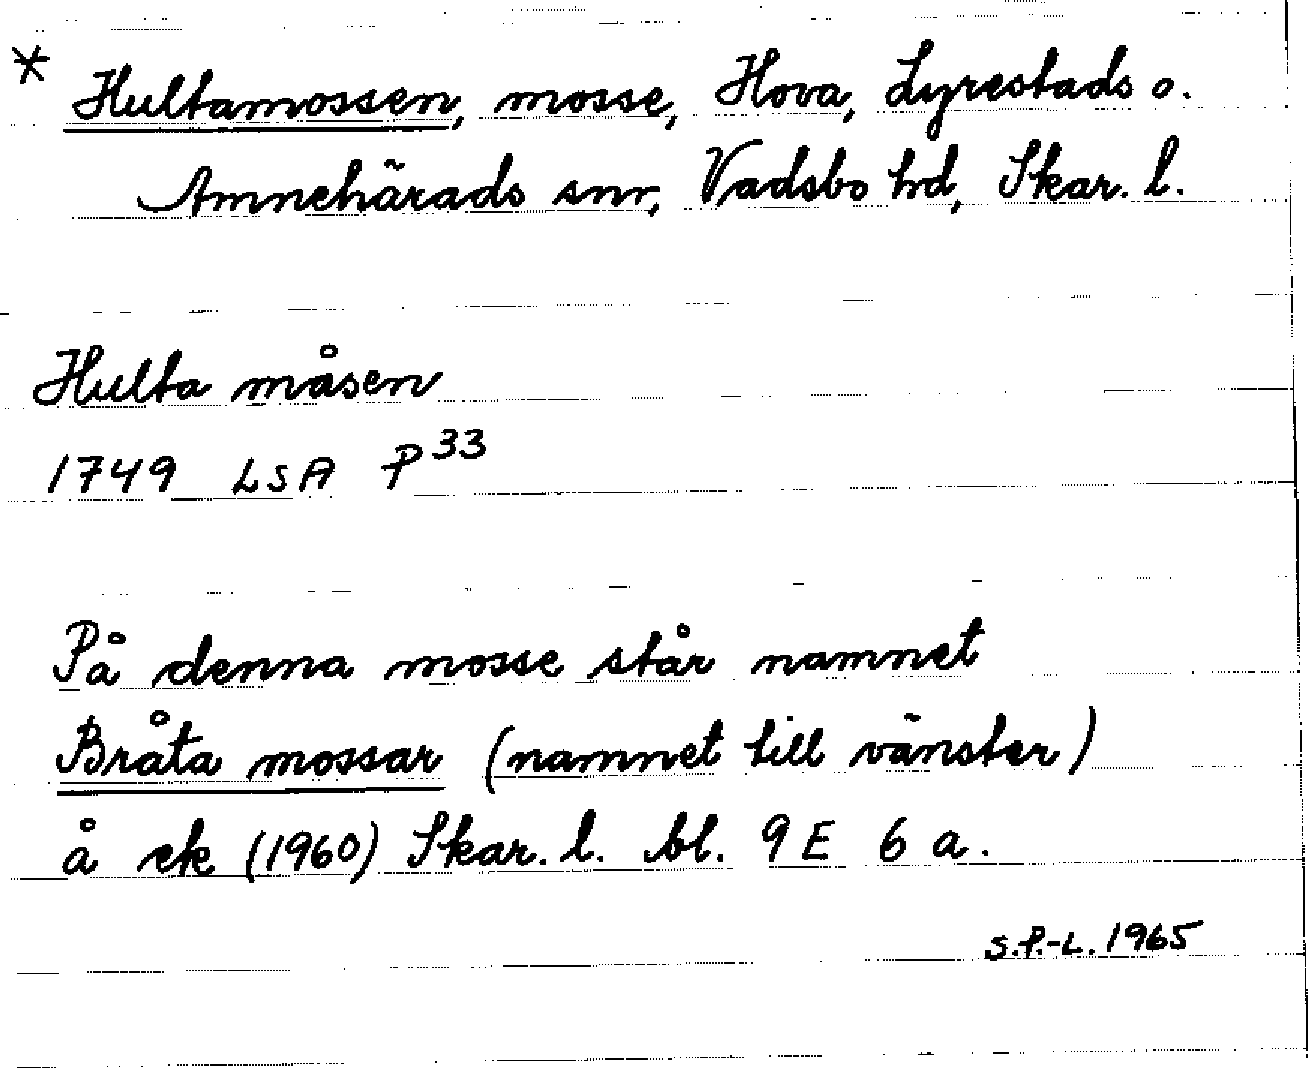 * Hultamossen, mosse, Hova, Lyrestads o.
Amnehärads snr, Vadsbo hd, Skar. l.
Hulta måsen
1749 LSA P 33
På denna mosse står namnet
Bråta mossar (namnet till vänster)
å ek (1960) Skar. l. bl. 9 E 6 a.
S.P.-L. 1965